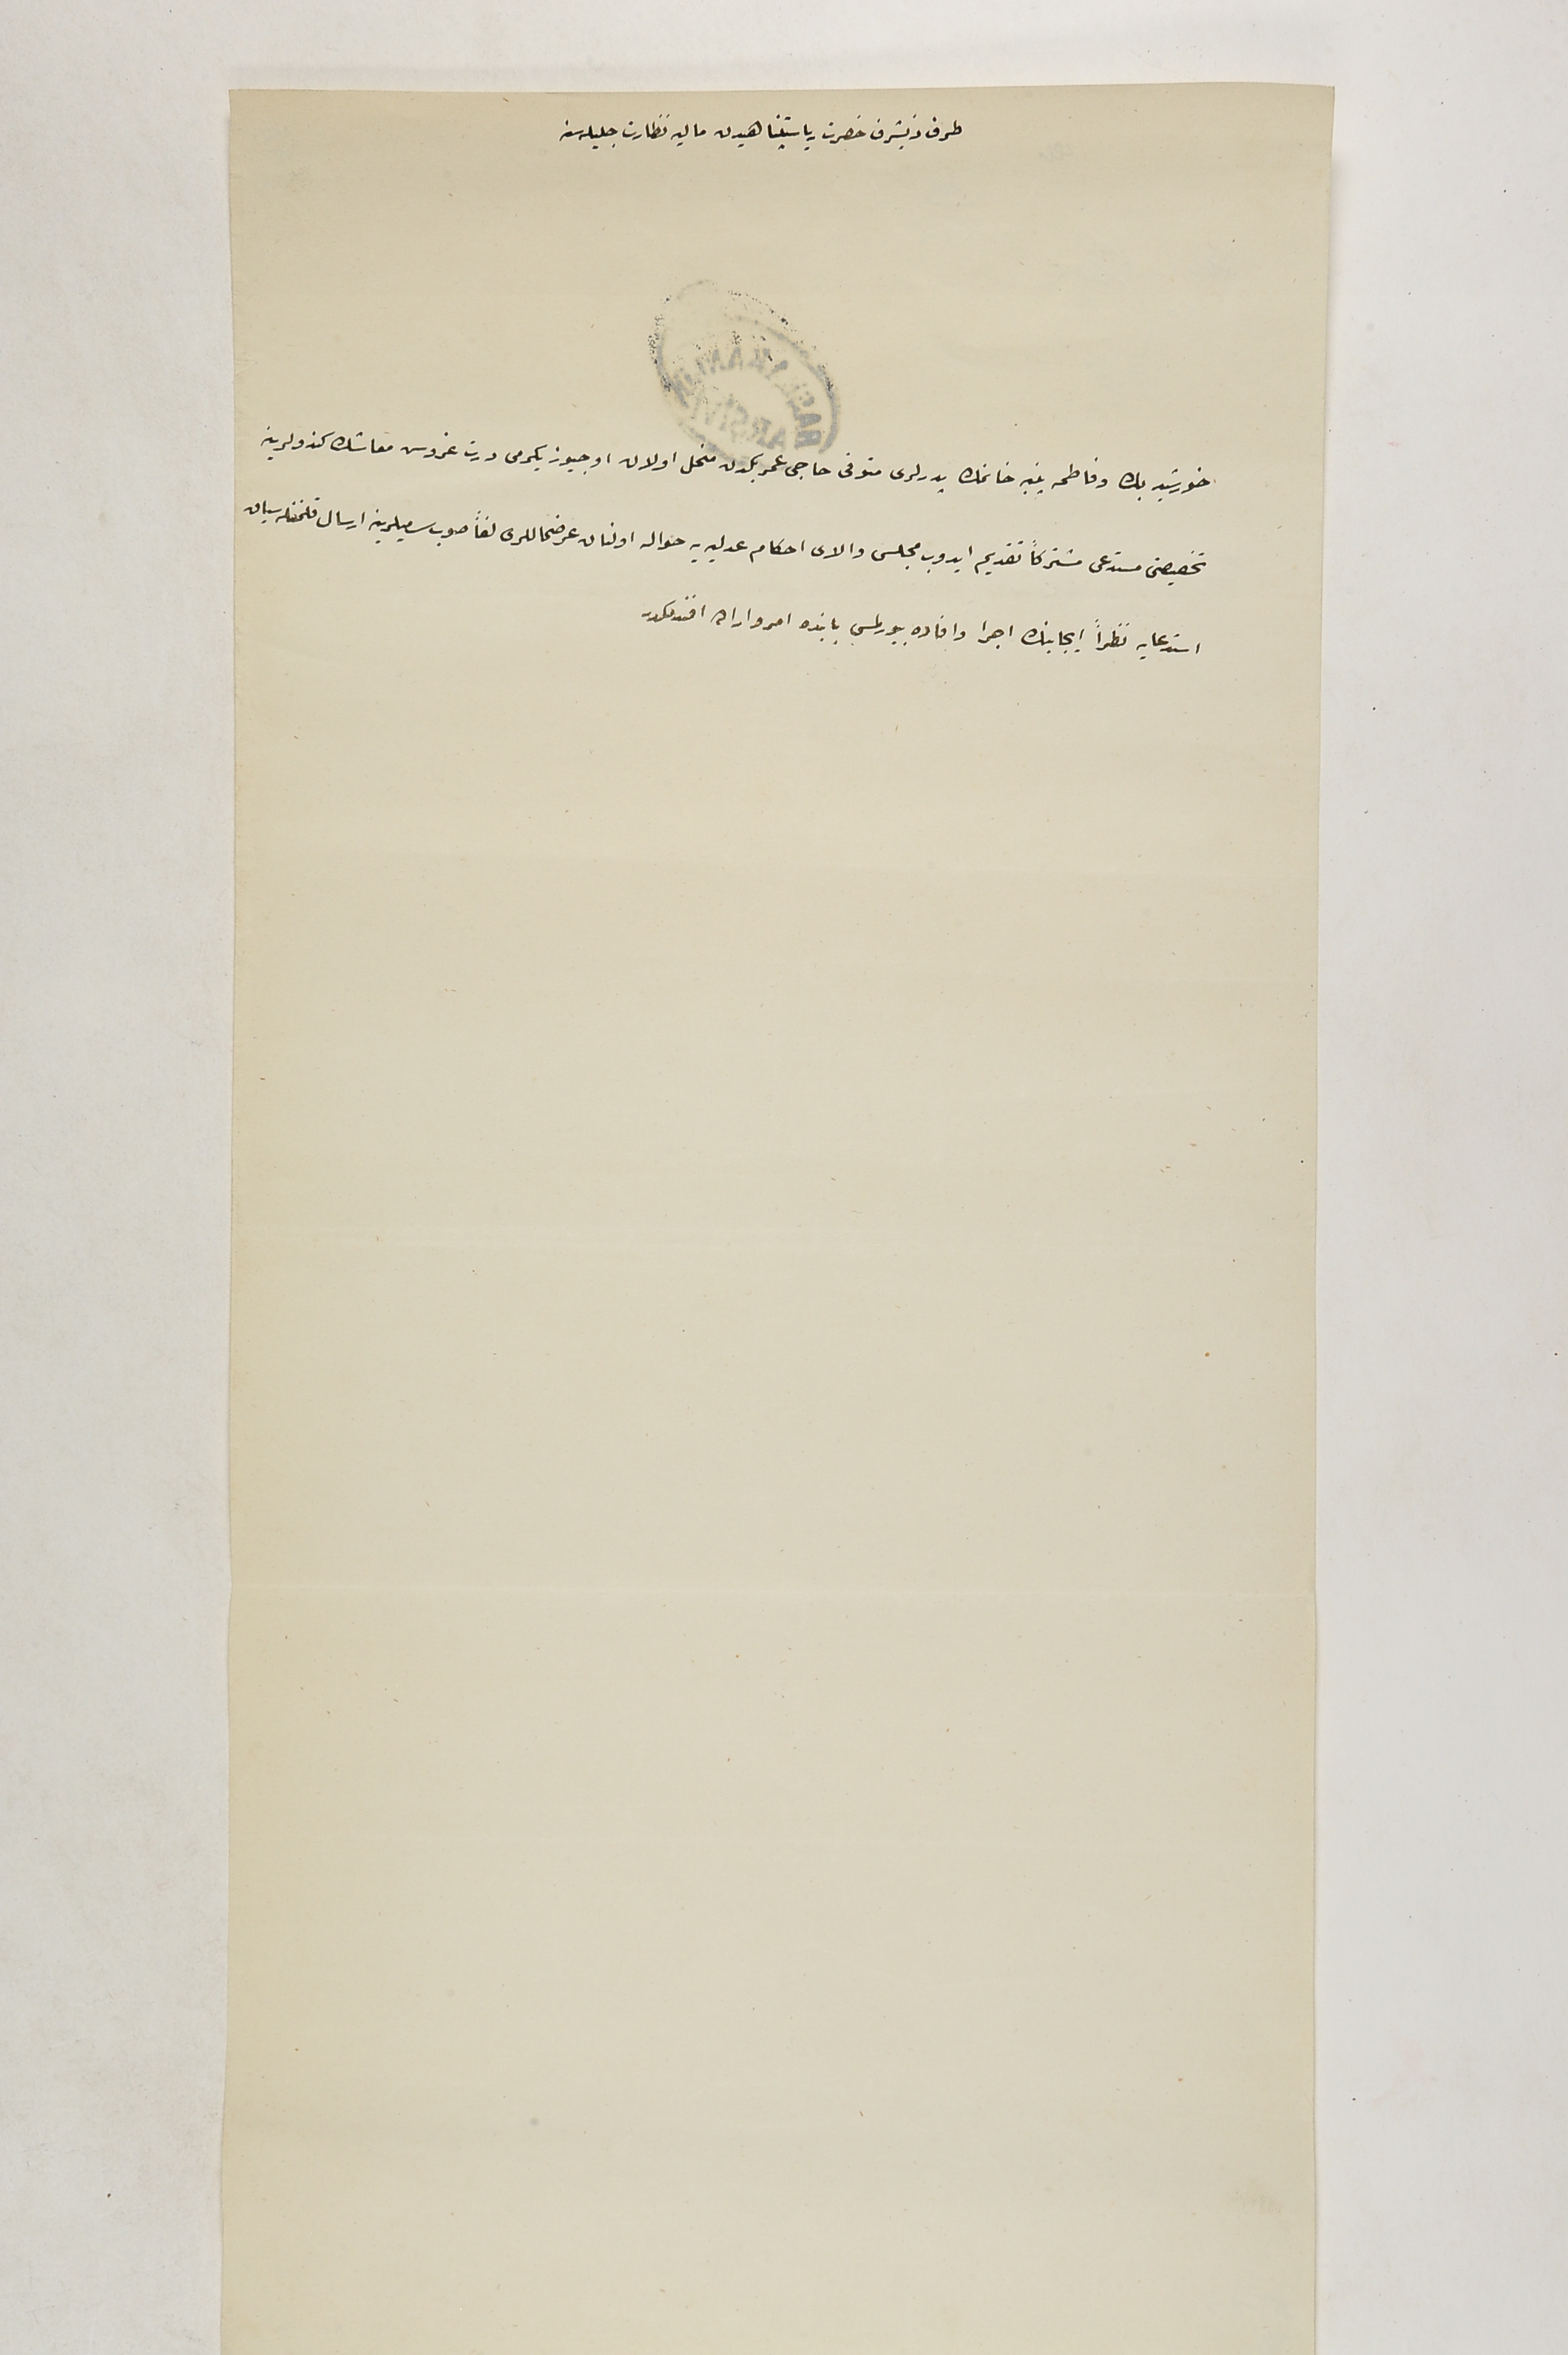 طرف ذیشرف حضرت ریاستپناهیدن مالیه نظارت جلیله‌سنه
خورشید بك و فاطمه خانمك پدرلری متوفی حاجی عمر بكدن منحل اولان اوچیوز یكرمی درت غروش معاشك كندولرینه
تخصیصنی مستدعی مشتركاً تقدیم ایدوب مجلس والای احكام عدلیه‌یه حواله اولنان عرضحاللری لفاً صوب سامیلرینه ارسال قلنمغله سیاق
استدعایه نظراً ایجابنك اجرا و افاده بیورلمسی بابنده امر و اراده افندمكدر